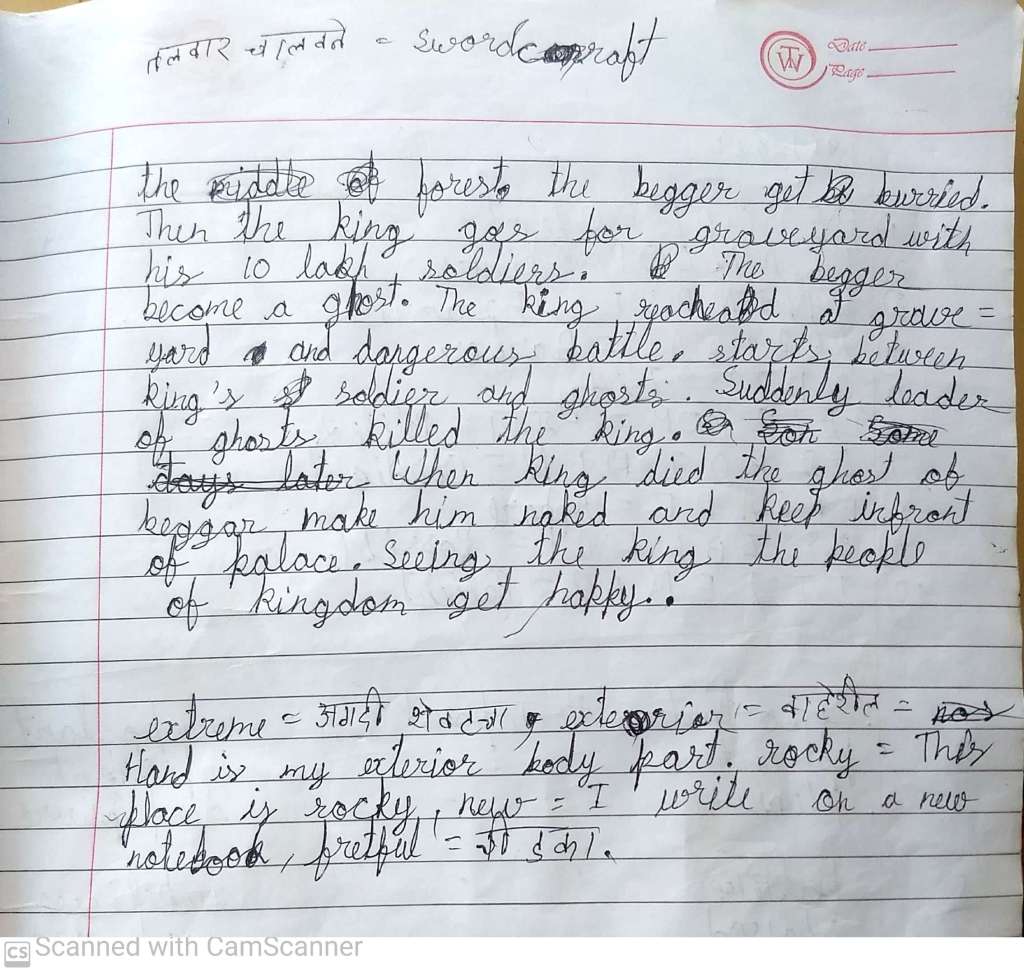 तलवार चालवने = swordcraft
Date
Page
the forest the begger get burried.
Then the king goes for graveyard with
his 10 lakh soldiers. The begger
become a ghost. The king reacheatd a grave=
yard and dangerous battle. starts between
king's soldier and ghosts. Suddenly leader
of ghosts killed the king. Son Some
days later When king died the ghost of
beggar make him naked and keep infront
of palace. Seeing the king the people
of kingdom get happy..
extreme = अगदी शेवटचा, exterior = बाहेरील =
Hand is my exterior body part. rocky = This
place is rocky, new = I write on a new
notebook, fretful =
CS Scanned with CamScanner